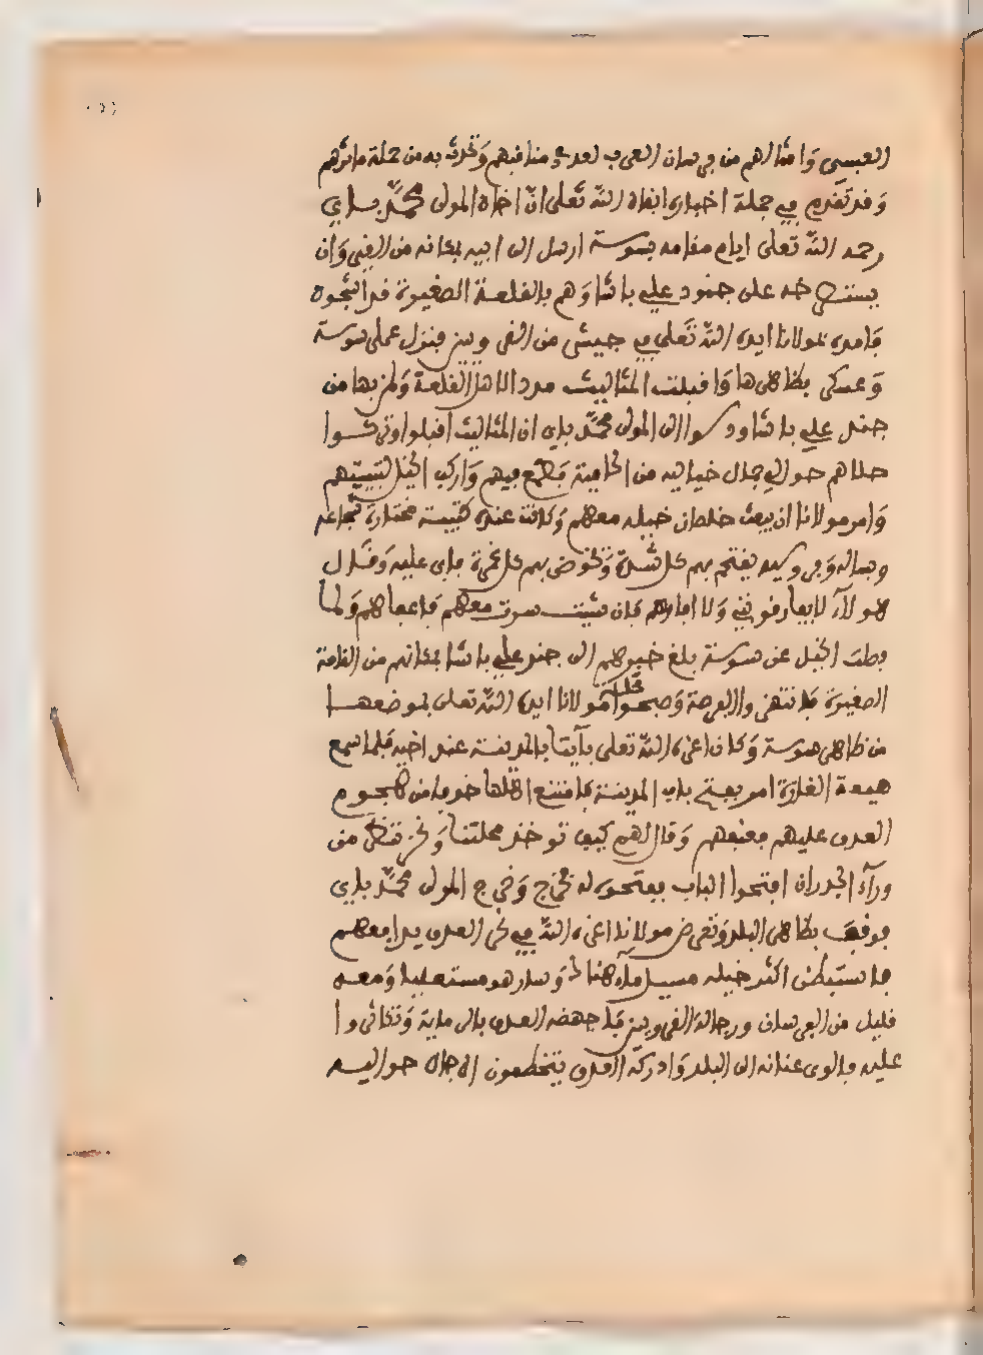 العبسي وَامثالهم من فرسان العرب لعد في مناقبهم وَتحدث به من جملة ماثرهم
وَقد تقدم في جملة اخباره ابقاه الله تعلى انّ اخاه المولى محمّد باي
رحمه الله تعلى ايام مقامه بسوسة ارسل الى ابيه بمكانه من القيروَان
يستنصرخه على جنود علي باشا وَهم بالقلعة الصغيرة قد اشجوه
فامده بمولانا ايده الله تعلى في جيش من الفروسين فنزل على سوسة
وَعسكر بظاهرها وَاقبلت المثاليث مددا لاهل القلعة وَلمن بها من
جند علي باشا ودسوا الى المولى محمّد باي ان المثاليث اقبلوا وتركوا
حللهم حوالي جمال خيالية من الحامية فطمع فيهم وَاركب الخيل لتبييتهم
وَامر مولانا ان يبعث خلصان خيله معهم وَكانت عنده كتيبة مختارة شجاعة
وبسالة وَفروسية يقتحم بهم كل شدة وَيخوض بهم كل غمرة فابى عليه وَقال
هولاء لا يفارقونني وَلا افارقهم فان شيت سرت معهم فاعفاهم وَلما
فصلت الخيل عن سوسة بلغ خبرهم الى جند علي باشا بمكانهم من القلعة
الصغيرة فانتهزوا الفرصة وَصبحوا محلة مولانا ايده الله تعلى بموضعها
من ظاهر سوسة وَكان اعزه الله تعلى بآيتا بالمدينة عند اخيه فلما سمع
هيعة الغارة امر بفتح باب المدينة فامتنع اهلها خوفا من هجوم
العدو عليهم فعنفهم وَقال لهم كيف توخذ محلتنا وَنحن ننظر من
ورآء الجدران افتحوا الباب ففتحوه له فخرج وَخرج المولى محمّد باي
فوقف بظاهر البلد وَتعرض مولانا اعزه الله في نحر العدو يدافعهم
فاستبطن اكثر خيله مسيل مآء هنالك وَسار هو مستعليا وَمعه
قليل من الفرسان ورجالة الفروسين فاجهضه العدو بالرماية وَتكاثروا
عليه فالوى عنانه الى البلد وَادركه العدو يتخطفون الرجالة حواليه